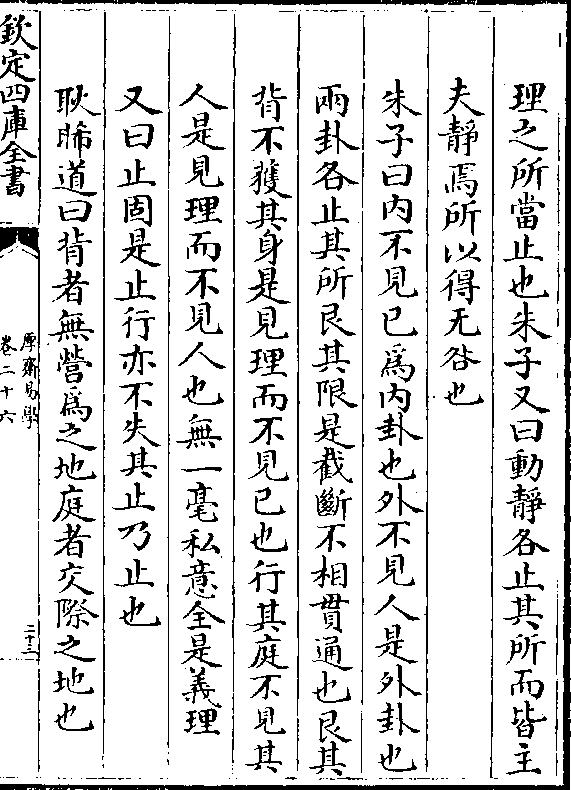 理之所當止也朱子又曰動靜各止其所而皆主
夫靜焉所以得无咎也
朱子曰内不見已爲内卦也外不見人是外卦也
兩卦各止其所艮其限是截斷不相貫通也艮其
背不獲其身是見理而不見已也行其庭不見其
人是見理而不見人也無一毫私意全是義理
又曰止固是止行亦不失其止乃止也
耿睎道曰背者無營爲之地庭者交際之地也
欽定四庫全書
厚齋易學
卷二十六
二十三